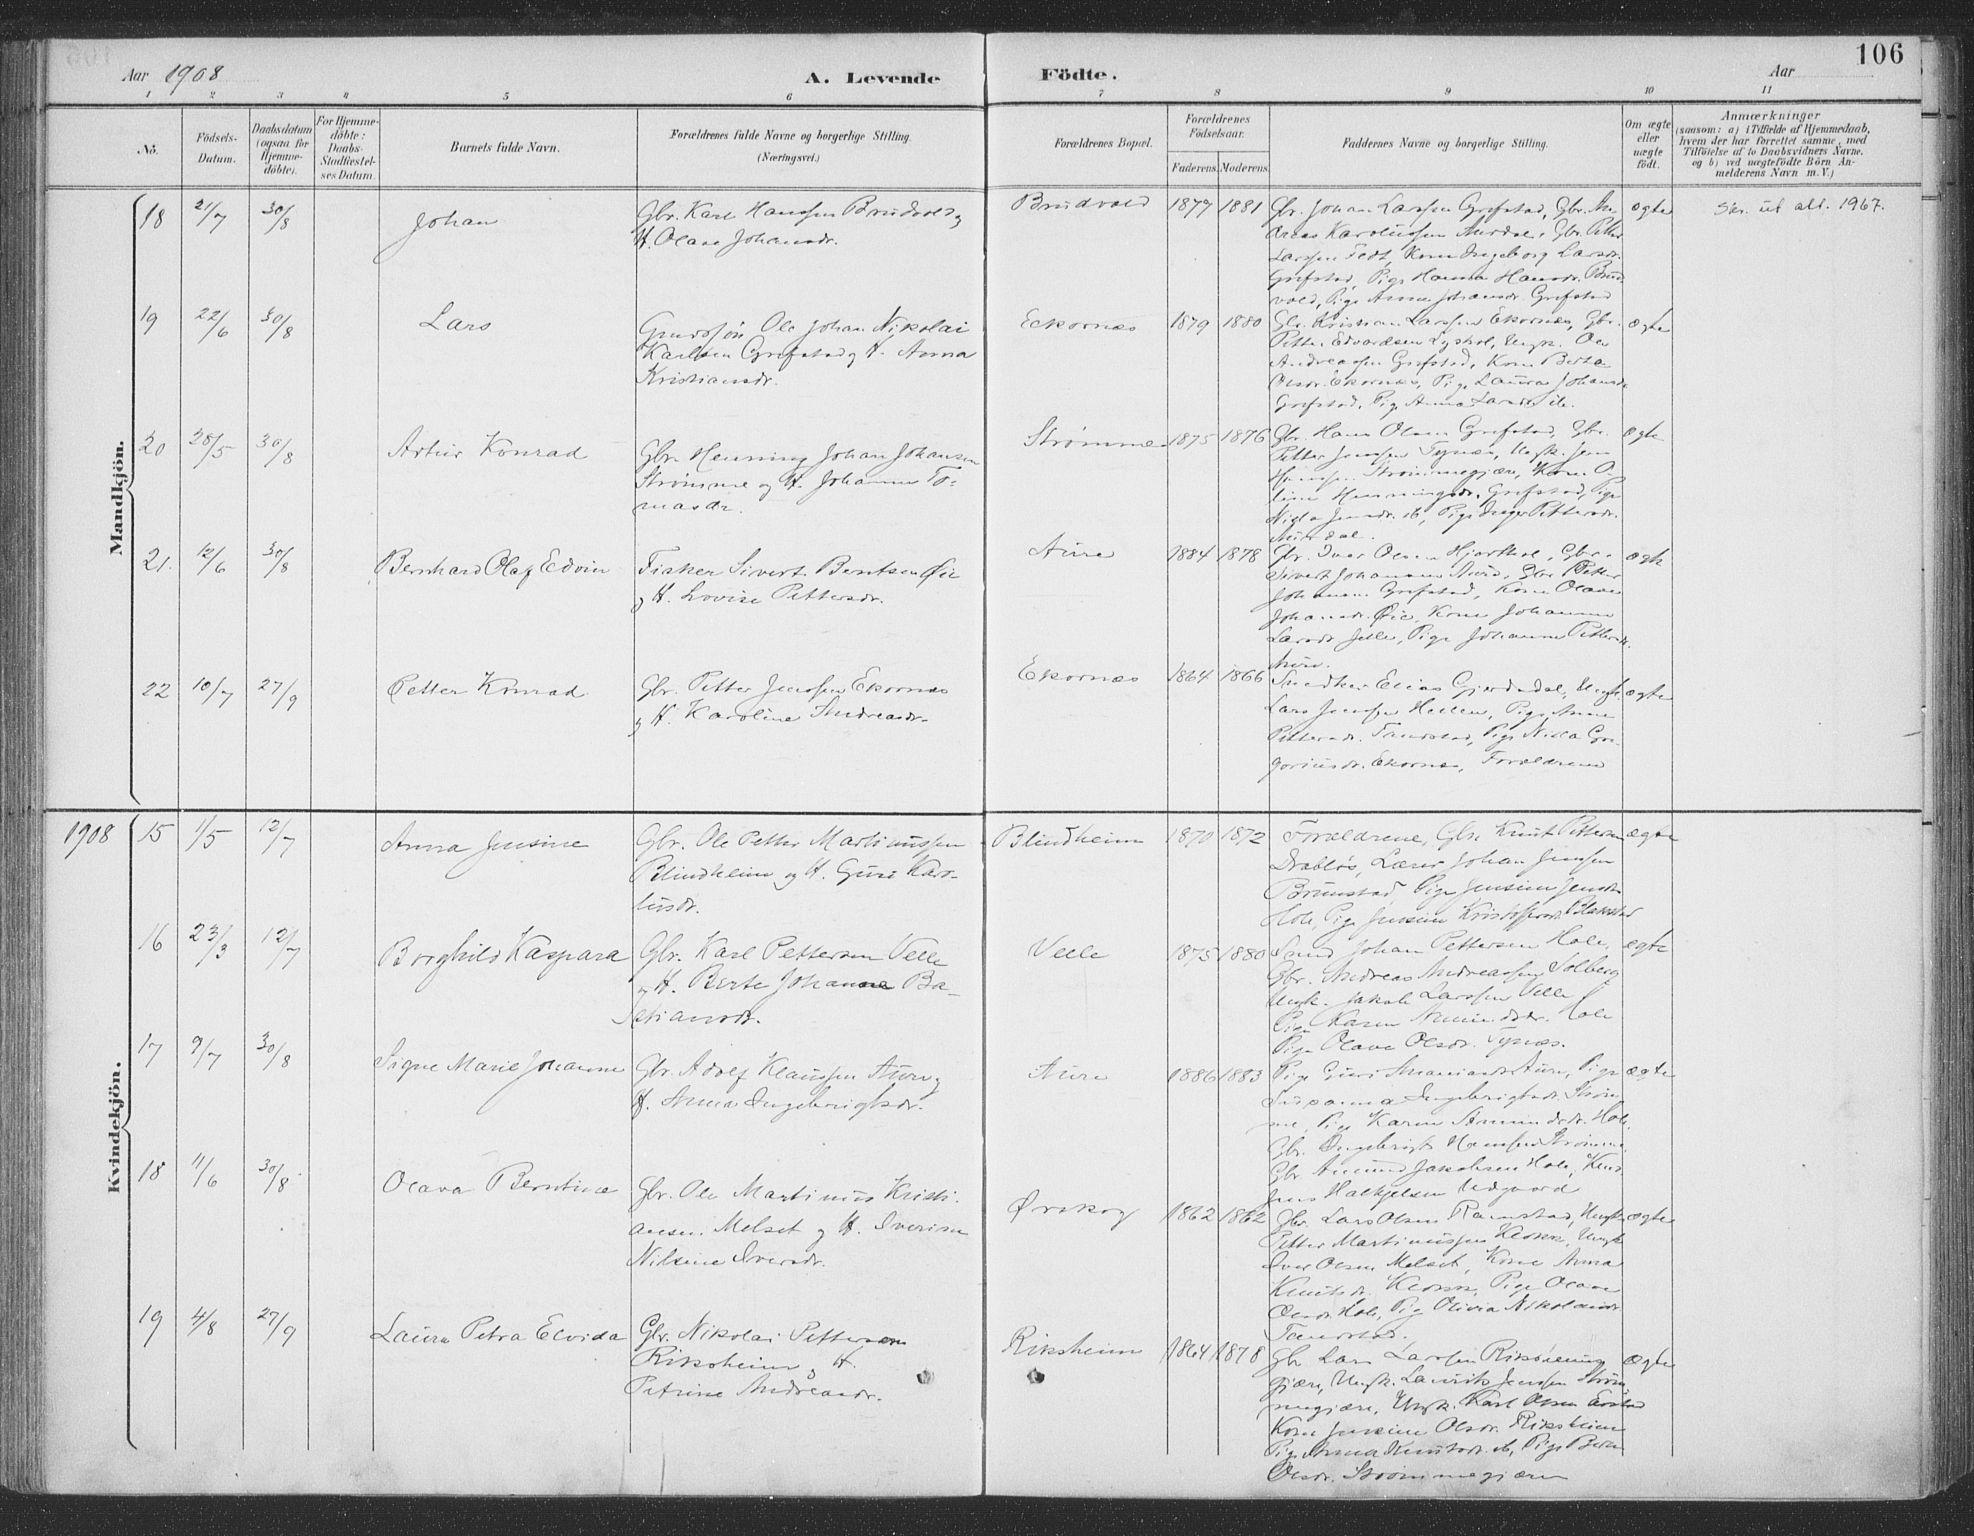 106
Aar 1908
A. Levende
Födte.
Aar
1 2 3 4 5 6 7 8 9 10 11
No.
Födsels-
Datum.
Daabsdatum
(ogsaa for
Hjemme-
döbte).
For Hjemme-
döbte:
Daabs-
Stadfæstel-
ses Datum.
Barnets fulde Navn.
Forældrenes fulde Navne og borgerlige Stilling.
(Næringsvei.)
Forældrenes Bopæl.
Forældrenes
Födselsaar.
Faderens. Moderens.
Faddernes Navne og borgerlige Stilling.
Om ægte
eller
uægte
födt.
Anmærkninger
(saasom: a) i Tilfælde af Hjemmedaab,
hvem der har forrettet samme, med
Tilföielse af to Daabsvidners Navne.
og b) ved uægtefödte Börn An-
melderens Navn m. V.)
Mandkjön.
18 21/7 30/8 Johan
Gbr. Karl Hanssen Brudvold og
H. Olave Johansdr.
Brudvold 1877 1881
Gbr. Johan Larssen Grefstad, Gbr. An-
dreas Karolussen Aurdal, Gbr. Petter
Larssen Tedt, Kone Ingeborg Larsdr.
Grefstad, Pige Hanna Hansdr. Brud-
vold, Pige Anne Johansdr. Grefstad
ægte
Skr. ut att. 1967.
19 22/6 30/8 Lars
Ole Johan Nikolai
Karlsen Grefstad og H. Anna
Kristiansdr.
Eckornæs 1879 1880
Gbr. Kristian Larssen Ekornæs, Gbr.
Petter Edvardsen Lyshol, Ungk. Ole
Andreassen Grefstad, Kone Berta
Olsdr. Ekornæs, Pige Laura Johansdr.
Grefstad, Pige Anna Larsdr.
ægte
20 28/5 30/8 Artur Konrad
Gbr. Henning Johan Johansen
Strømme og H. Johanne To-
masdr.
Strømme 1875 1876
Gbr. Hans Olsen Grefstad, Gbr.
Petter Jensen Tynæs, Ungk. Jens
Hanssen Strømmegjære, Kone O-
line Henningsdr. Grefstad, Pige
Nikla Jensdr. ib, Pige Inger Pettersdr.
Aurdal.
ægte
21. 12/6 30/8 Bernhard Olaf Edvin
Fisker Sivert Berntsen Øie
og H. Lovise Pettersdr.
Aure 1884 1878
Gbr. Iver Olsen Hjorthol, Gbr.
Sivert Johannsen Aure, Gbr. Petter
Johansen Grefstad, Kone Olave
Johansdr. Øie, Kone Johanne
Larsdr. Jelle, Pige Johanne Pettersdr.
Aure.
ægte
22 10/7 27/9 Petter Konrad
Gbr. Petter Jenssen Ekornæs
og H. Karoline Andreasdr.
Ekornæs 1864 1866
Snedker Elias Gjerdedal, Ungk.
Lars Jenssen Hellen, Pige Anne
Pettersdr. Tandstad, Pige Nikla Gre-
goriusdr. Ekornæs, Forældrene
ægte
Kvindekjön.
1908 15 1/5 12/7 Anna Jensine
Gbr. Ole Petter Martinussen
Blindheim og H. Guri Karo-
lusdr.
Blindheim 1870 1872
Forældrene, Gbr. Knut Pettersen
Drabløs, Lærer Johan Jenssen
Brunstad, Pige Jensine Jensdr.
Hole, Pige Jensine Kristoffersdr.
ægte
16 23/3 12/7 Borghild Kaspara
Gbr. Karl Pettersen Velle
og H. Berte Johanne Ba-
stiansdr.
Velle 1875 1880
Johan Pettersen Hole,
Gbr. Andreas Andreassen Solberg
Ungk. Jakob Larssen Velle
Pige Karen Amundsdr. Hole
Pige Olave Olsdr. Tynæs.
ægte
17 9/7 30/8 Signe Marie Johanne
Gbr. Adolf Klaussen Aure og
H. Anna Ingebrigtsdr.
Aure 1886 1883
Pige Guri Aure, Pige
Susanna Ingebrigtsdr. Strøm-
me, Pige Karen Amundsdr. Hole,
Gbr. Ingebrigt Hanssen Strømme
Gbr. Amund Jakobsen Hole,
Jens Halkjelsen
ægte
18 11/6 30/8 Olava Berntine
Gbr. Ole Martinus Kristi-
ansen Melset og H. Iverine
Nilsine Iversdr.
Ørskog 1862 1862
Gbr. Lars Olsen Ramstad, Ungk.
Petter Martinussen Klokk, Ungk.
Iver Olsen Melset, Kone Anna
Knutsdr. Klokk, Pige Olave
Olsdr. Hole, Pige Olivia Nikolaisdr.
Tandstad.
ægte
19 4/8 27/9 Laura Petra Elvida
Gbr. Nikolai Pettersen
Riksheim og H.
Petrine Andreasdr.
Riksheim 1864 1878
Gbr. Lars Larssen
gjære, Ungk. Laurits Jenssen Strøm-
megjære, Ungk. Karl Olsen
Kone Jensine Olsdr. Riksheim
Pige Anna Knutsdr. ib, Pige
Olsdr. Strømmegjære
ægte